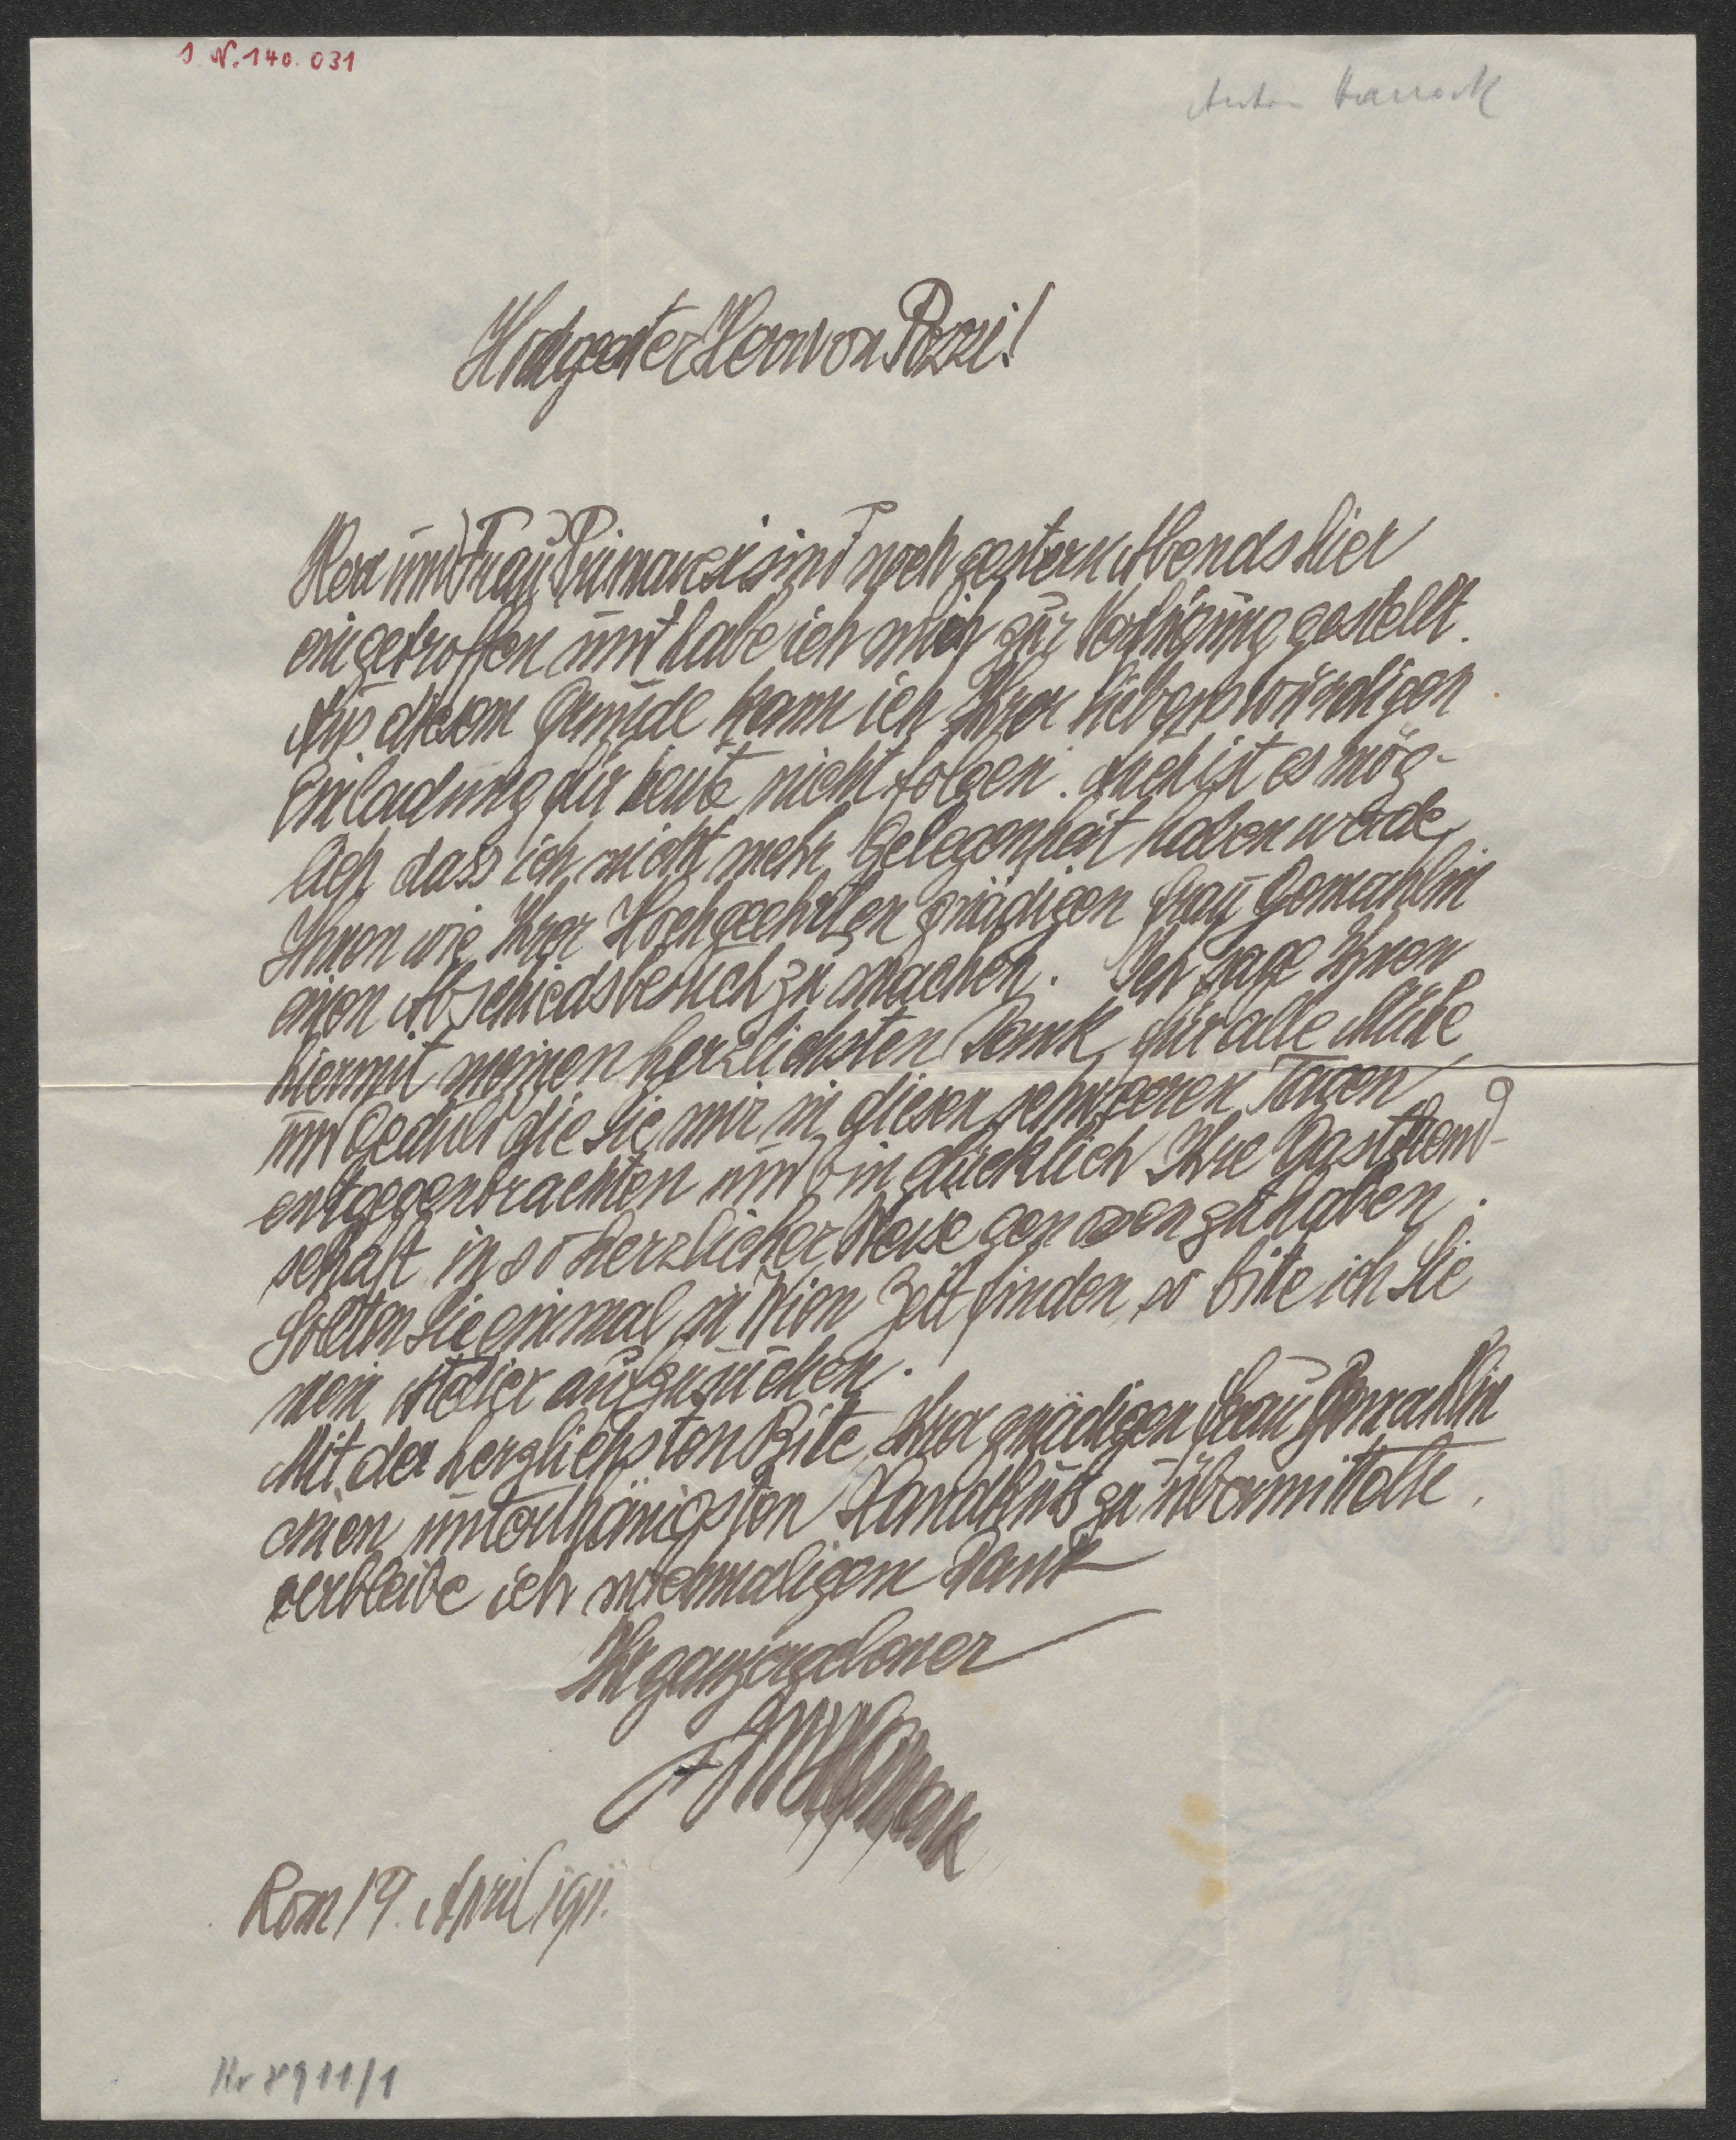 J. N. 140.031
Anton Hanak
Hochgeehrter Herr von Pozzi!
Herr und Frau Primavesi sind noch gestern Abends hier
eingetroffen und habe ich mich zur Verfügung gestellt.
Aus diesem Grunde kann ich Ihrer liebenswürdigen
Einladung für heute nicht folgen. Auch ist es mög-
lich dass ich nicht mehr Gelegenheit haben werde,
Ihnen wie Ihrer Hochgeehrten gnädigen Frau Gemahlin
einen Abschiedsbesuch zu machen. Ich sage Ihnen
hiermit meinen herzlichsten Dank, für alle Mühe
und Geduld die Sie mir in diesen schweren Tagen
entgegenbrachten und bin glücklich Ihre Gastfreund-
schaft in so herzlicher Weise genossen zu haben.
Sollten Sie einmal in Wien Zeit finden, so bitte ich Sie
mein Atelier aufzusuchen.
Mit der herzlichsten Bitte, Ihrer gnädigen Frau Gemahlin
einen unterthänigsten Handkuss zu übermitteln,
verbleibe ich nochmaligem Dank
Ihr ganz ergebener
Ant Hanak
Rom 19. April 1911.
Nr 8911/1